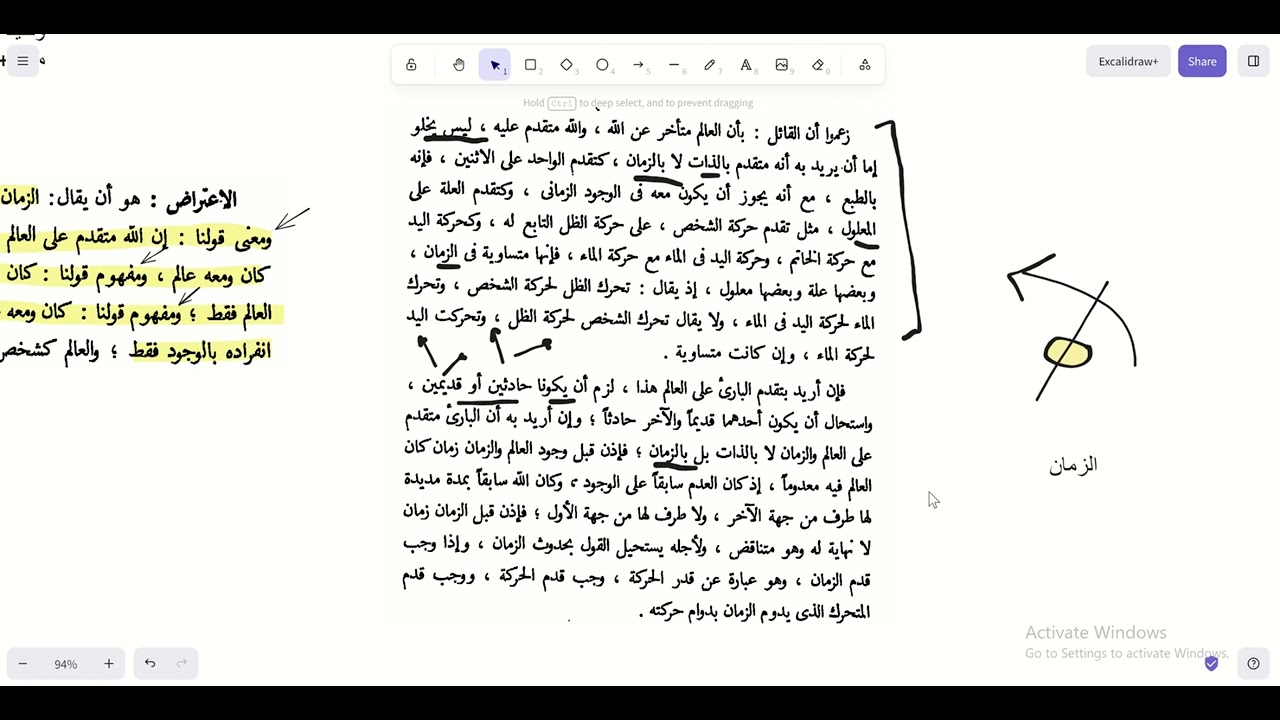 Excalidraw+
Share
1
2
3
4
5
6
7
8
9
0
Hold Ctrl to deep select, and to prevent dragging
زعموا أن القائل : بأن العالم متأخر عن الله ، والله متقدم عليه ، ليس يخلو
إما أن يريد به أنه متقدم بالذات لا بالزمان ، كتقدم الواحد على الاثنين ، فإنه
بالطبع ، مع أنه يجوز أن يكون معه فى الوجود الزمانى ، وكتقدم العلة على
المعلول ، مثل تقدم حركة الشخص ، على حركة الظل التابع له ، وكحركة اليد
مع حركة الخاتم ، وحركة اليد فى الماء مع حركة الماء ، فإنها متساوية فى الزمان ،
وبعضها علة وبعضها معلول ، إذ يقال : تحرك الظل لحركة الشخص ، وتحرك
الماء لحركة اليد فى الماء ، ولا يقال تحرك الشخص لحركة الظل ، وتحركت اليد
لحركة الماء ، وإن كانت متساوية .
فإن أريد بتقدم البارئ على العالم هذا ، لزم أن يكونا حادثين أو قديمين ،
واستحال أن يكون أحدهما قديماً والآخر حادثاً ؛ وإن أريد به أن البارئ متقدم
على العالم والزمان لا بالذات بل بالزمان ؛ فإذن قبل وجود العالم والزمان زمان كان
العالم فيه معدوماً ، إذ كان العدم سابقاً على الوجود ، وكان الله سابقاً بمدة مديدة
لها طرف من جهة الآخر ، ولا طرف لها من جهة الأول ؛ فإذن قبل الزمان زمان
لا نهاية له وهو متناقض ، ولأجله يستحيل القول بحدوث الزمان ، وإذا وجب
قدم الزمان ، وهو عبارة عن قدر الحركة ، وجب قدم الحركة ، ووجب قدم
المتحرك الذى يدوم الزمان بدوام حركته .
الاعتراض : هو أن يقال: الزمان
ومعنى قولنا : إن الله متقدم على العالم
كان ومعه عالم ، ومفهوم قولنا : كان
العالم فقط ؛ ومفهوم قولنا : كان ومعه
انفراده بالوجود فقط ؛ والعالم كشخص
الزمان
94%
Activate Windows
Go to Settings to activate Windows.